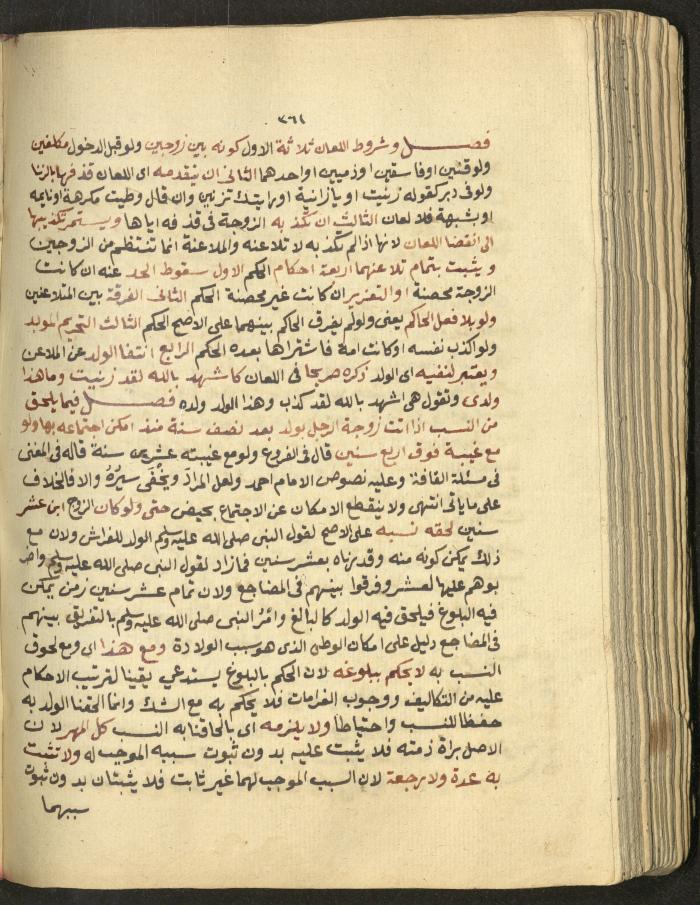 ٣٦١
فصل وشروط اللعان ثلاثة الاول كونه بين زوجين ولو قبل الدخول مكلفين
ولو قنين او فاسقين او ذميين او احدهما الثاني ان يتقدمه اي اللعان قذفها بالزنا
ولو في دبر كقوله زنيت او يا زانية او رايتك تزنين وان قال وطيت مكرهة او نايمه
او بشبهة فلا لعان الثالث ان تكذبه الزوجة في قذفه اياها ويستمر تكذيبها
الى انقضا اللعان لانها اذا لم تكذبه لا تلاعنه والملاعنة انما تنتظم من الزوجين
ويثبت بتمام تلاعنهما اربعة احكام الحكم الاول سقوط الحد عنه ان كانت
الزوجة محصنة او التعزير ان كانت غير محصنة الحكم الثاني الفرقة بين المتلاعنين
ولو بلا فعل الحاكم يعني ولو لم يفرق الحاكم بينهما على الاصح الحكم الثالث التحريم الموبد
ولو اكذب نفسه او كانت امة فاشتراها بعده الحكم الرابع انتفا الولد عن الملاعن
ويعتبر لنفيه اي الولد ذكره صريحا في اللعان كاشهد بالله لقد زنيت وما هذا
ولدي وتقول هي اشهد بالله لقد كذب وهذا الولد ولده فصل فيما يلحق
من النسب اذا اتت زوجة الرجل بولد بعد نصف سنة منذ امكن اجتماعه بها ولو
مع غيبة فوق اربع سنين قال في الفروع ولو مع غيبته عشرين سنة قاله في المغني
في مسئلة القافة وعليه نصوص الامام احمد ولعل المراد ويخفى سيره والا فالخلاف
على ما ياتي انتهى ولا ينقطع الامكان عن الاجتماع بحيض حتى ولو كان الزوج ابن عشر
سنين لحقه نسبه على الاصح لقول النبي صلى الله عليه وسلم الولد للفراش ولان مع
ذلك يمكن كونه منه وقدرناه بعشر سنين فما زاد لقول النبي صلى الله عليه وسلم واضر
بوهم عليها لعشر وفرقوا بينهم في المضاجع ولان تمام عشر سنين زمن يمكن
فيه البلوغ فيلحق فيه الولد كالبالغ وامر النبي صلى الله عليه وسلم بالتفريق بينهم
في المضاجع دليل على امكان الوطي الذي هو سبب الولادة ومع هذا اي ومع لحوق
النسب به لا يحكم ببلوغه لان الحكم بالبلوغ يستدعي يقينا لترتيب الاحكام
عليه من التكاليف ووجوب الغرامات فلا يحكم به مع الشك وانما الحقنا الولد به
حفظا للنسب واحتياطا ولا يلزمه اي بالحاقنا به النسب كل المهر لان
الاصل براة ذمته فلا يثبت عليه بدون ثبوت سببه الموجب له ولا تثبت
به عدة ولا رجعة لان السبب الموجب لهما غير ثابت فلا يثبتان بدون ثبوت
سببهما